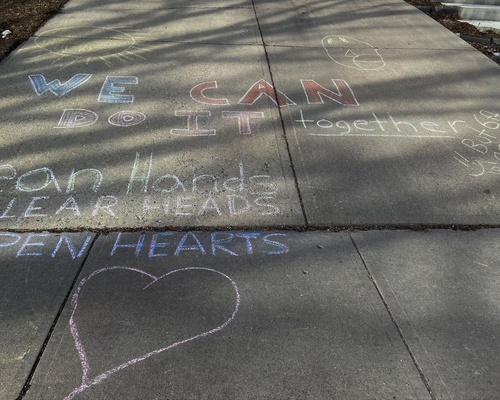 WE CAN
DO IT together
ean Hands
LEAR HEADS
PEN HEARTS